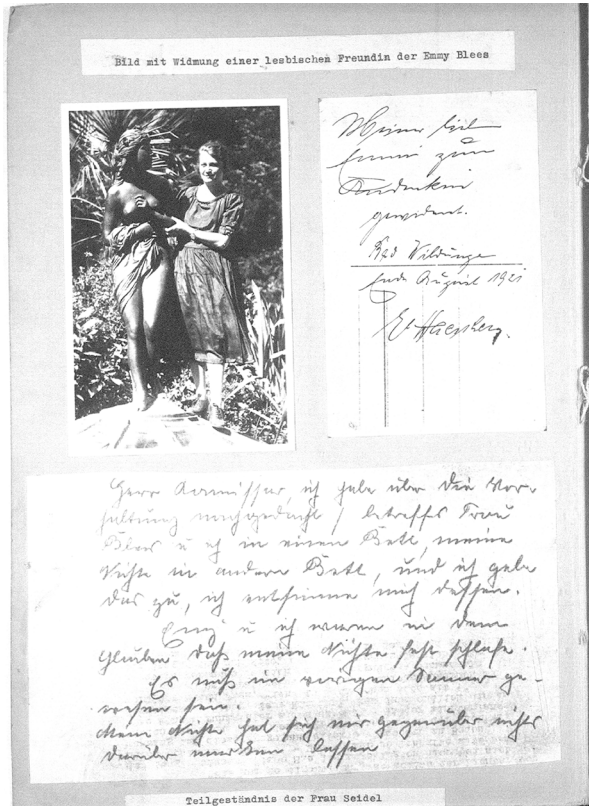 Bild mit Widmung einer lesbischen Freundin der Emmy Blees
Meiner lieb
Emmi zum
Andenken
gewidmet.
Bad Wildunge
Ende August 1921
Herr Komissar, ich habe über die Vor-
haltung nachgedacht / betreffs Frau
Blees u ich in einen Bett, meine
Nichte in andern Bett, und ich gebe
das zu, ich entsinne mich dessen.
Emy u ich waren in dem
Glauben daß meine Nichte fest schlafe.
Es muß im vorigen Sommer ge-
wesen sein.
Mein Nichte hat sich mir gegenüber nichts
darüber merken lassen
Teilgeständnis der Frau Seidel